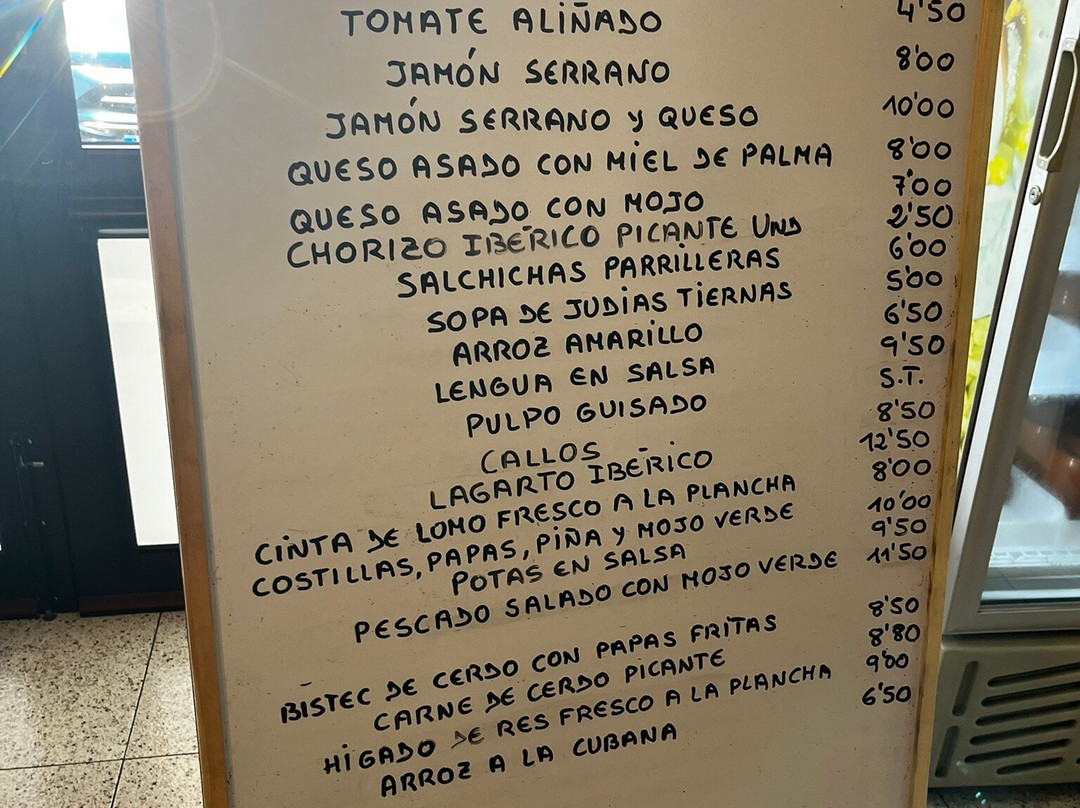 TOMATE ALIÑADO 4'50
JAMÓN SERRANO 8'00
JAMÓN SERRANO Y QUESO 10'00
QUESO ASADO CON MIEL DE PALMA 8'00
QUESO ASADO CON MOJO 7'00
CHORIZO IBÉRICO PICANTE UND 2'50
SALCHICHAS PARRILLERAS 6'00
SOPA DE JUDIAS TIERNAS 5'00
ARROZ AMARILLO 6'50
LENGUA EN SALSA 9'50
PULPO GUISADO S.T.
CALLOS 8'50
LAGARTO IBÉRICO 12'50
CINTA DE LOMO FRESCO A LA PLANCHA 8'00
COSTILLAS, PAPAS, PIÑA Y MOJO VERDE 10'00
POTAS EN SALSA 9'50
PESCADO SALADO CON MOJO VERDE 11'50
BISTEC DE CERDO CON PAPAS FRITAS 8'50
CARNE DE CERDO PICANTE 8'80
HIGADO DE RES FRESCO A LA PLANCHA 9'00
ARROZ A LA CUBANA 6'50